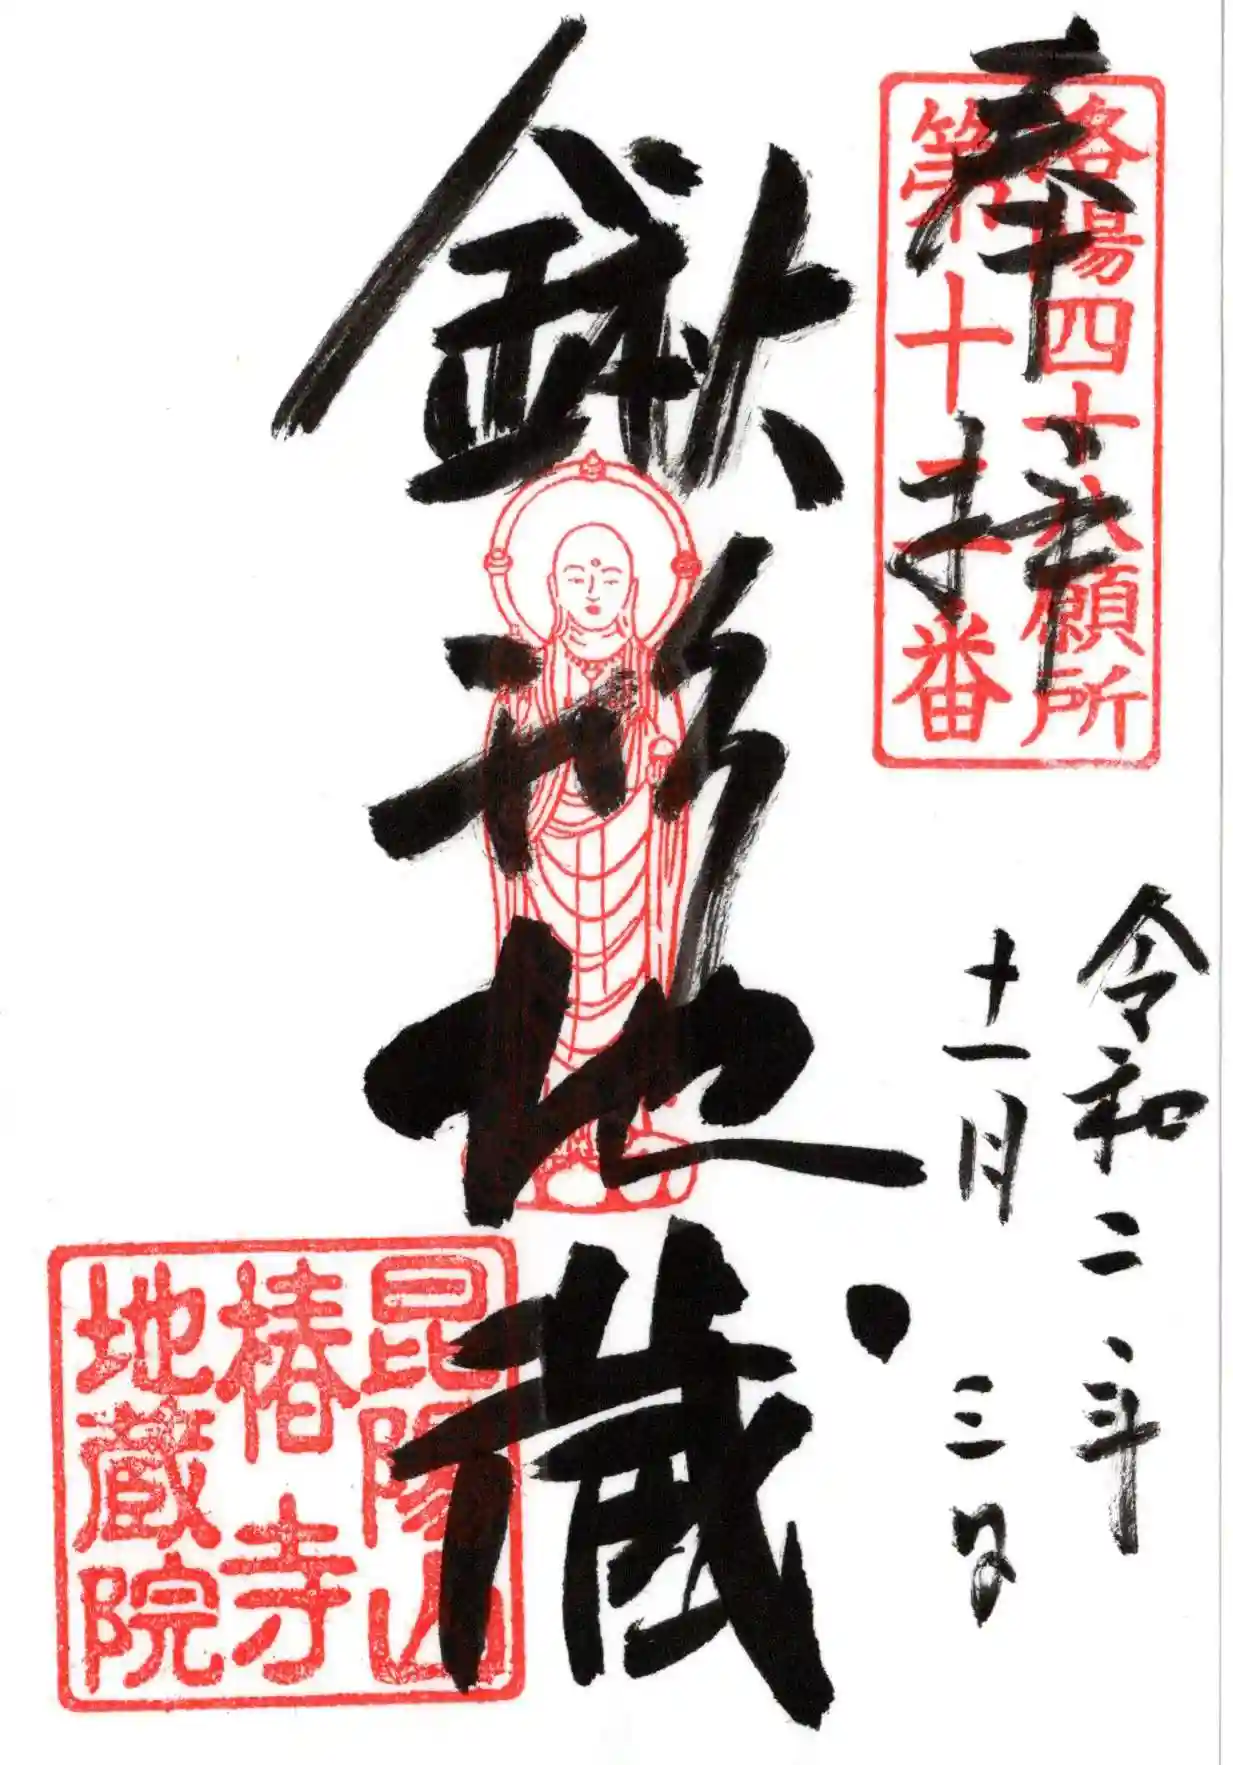 奉拝
洛陽四十八願所
第十
番
令和二年
十一月三日
鍬形地蔵
昆陽山
椿寺
地蔵院